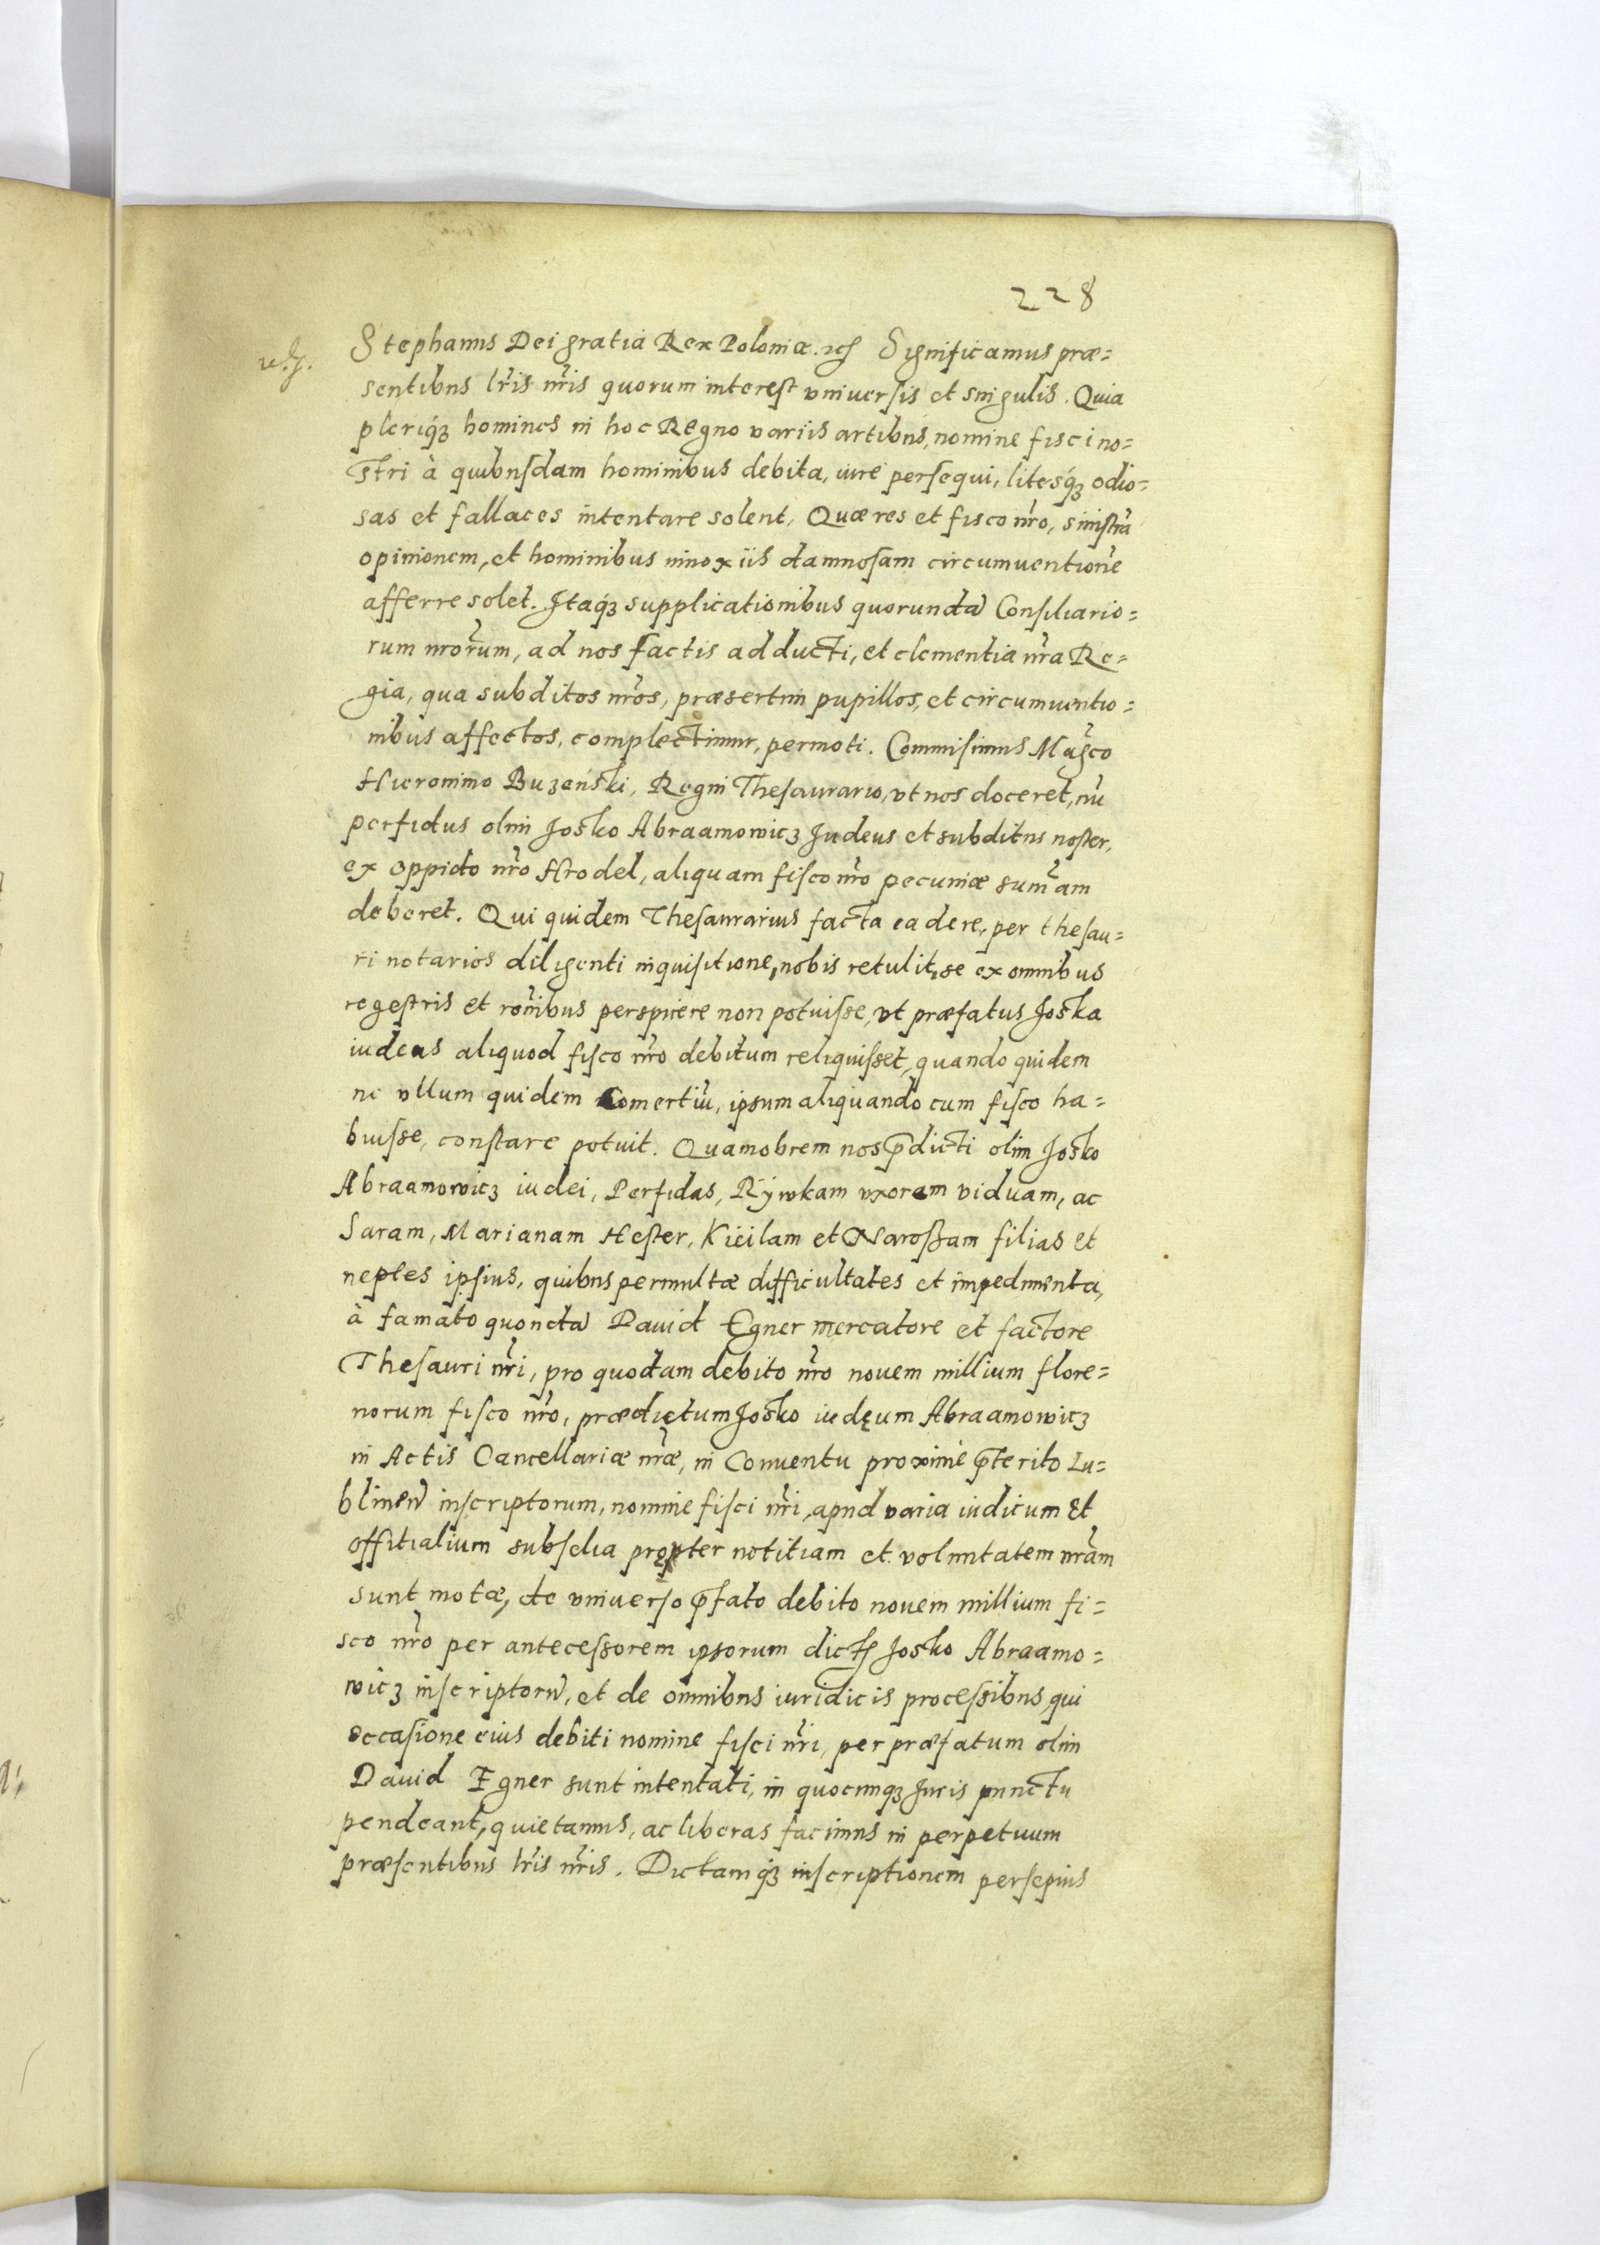 228
Stephanus Dei gratia Rex Poloniæ. Significamus præ=
sentibus lr̃is nr̃is quorum interest vniuersis et singulis. Quia
pleriq́ȝ homines in hoc Regno variis artibus, nomine fisci no=
stri à quibusdam hominibus debita, iure persequi, litesq́ȝ odio=
sas et fallaces intentare solent, Quæ res et fisco nr̃o, sinistrã
opinionem, et hominibus innoxiis damnosam circumuentionẽ
afferre solet. Itaq́ȝ supplicationibus quorundã Consiliario=
rum nr̃orum, ad nos factis adducti, et clementia nr̃a Re=
gia, qua subditos nr̃os, præsertim pupillos, et circumuentio=
nibus affectos, complectimur, permoti. Commisimus Mag̃co
Hieronimo Buzeński, Regni Thesaurario, vt nos doceret, nũ
perfidus olim Josko Abraamowicȝ Judeus et subditus noster,
ex oppido nr̃o Hrodel, aliquam fisco nr̃o pecuniæ sum̃am
deberet. Qui quidem Thesaurarius facta ea de re, per thesau=
ri notarios diligenti inquisitione, nobis retulit, se ex omnibus
regestris et ronibus perspicere non potuisse, vt præfatus Joska
iudeus aliquod fisco nr̃o debitum reliquisset, quando quidem
ne vllum quidem Comertiũ, ipsum aliquando cum fisco ha=
buisse, constare potuit. Quamobrem nos p̃dicti olim Josko
Abraamowicȝ iudei, Perfidas, Rÿwkam vxorem viduam, ac
Saram, Marianam Hester, Kiëilam et Naroßam filias et
neptes ipsius, quibus permultæ difficultates et impedimenta,
à famato quondã Dauid Egner mercatore et factore
Thesauri nr̃i, pro quodam debito nr̃o nouem millium flore=
norum fisco nr̃o, prædictum Josko iudęum Abraamowicȝ
in Actis Cancellariæ nr̃æ, in Conuentu proxime p̃terito Lu=
blineñ inscriptorum, nomine fisci nr̃i, apud varia iudicum et
offitialium subselia pręter notitiam et voluntatem nr̃am
sunt motæ, de vniuerso p̃fato debito nouem millium fi=
sco nr̃o per antecessorem ipsorum dict̃ Josko Abraamo=
wicȝ inscriptorũ, et de omnibus iuridicis processibus, qui
occasione eius debiti nomine fisci nr̃i, per præfatum olim
Dauid Egner sunt intentati, in quocunqȝ Juris punctu
pendeant, quietamus, ac liberas facimus in perpetuum
præsentibus lr̃is nr̃is. Dictamq́ȝ inscriptionem persepius